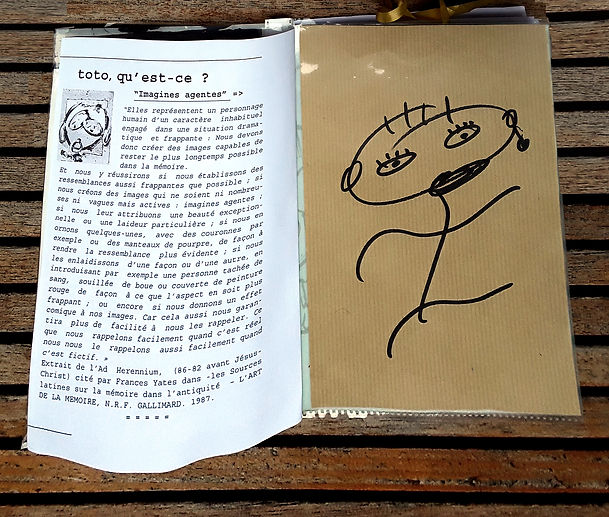 toto, qu'est-ce ?
"Imagines agentes" =>
"Elles représentent un personnage
humain d'un caractère inhabituel
engagé dans une situation drama-
tique et frappante : Nous devons
donc créer des images capables de
rester le plus longtemps possible
dans la mémoire.
Et nous y réussirons si nous établissons des
ressemblances aussi frappantes que possible ; si
nous créons des images qui ne soient ni nombreu-
ses ni vagues mais actives : imagines agentes ;
si nous leur attribuons une beauté exception-
nelle ou une laideur particulière ; si nous en
ornons quelques-unes, avec des couronnes par
exemple ou des manteaux de pourpre, de façon à
rendre la ressemblance plus évidente ; si nous
les enlaidissons d'une façon ou d'une autre, en
introduisant par exemple une personne tachée de
sang, souillée de boue ou couverte de peinture
rouge de façon à ce que l'aspect en soit plus
frappant ; ou encore si nous donnons un effet
comique à nos images. Car cela aussi nous garan-
tira plus de facilité à nous les rappeler. Ce
que nous rappelons facilement quand c'est réel
nous nous le rappelons aussi facilement quand
c'est fictif. »
Extrait de l'Ad Herennium, (86-82 avant Jésus-
Christ) cité par Frances Yates dans -les Sources
latines sur la mémoire dans l'antiquité - L'ART
DE LA MEMOIRE, N.R.F. GALLIMARD. 1987.
= = = = =